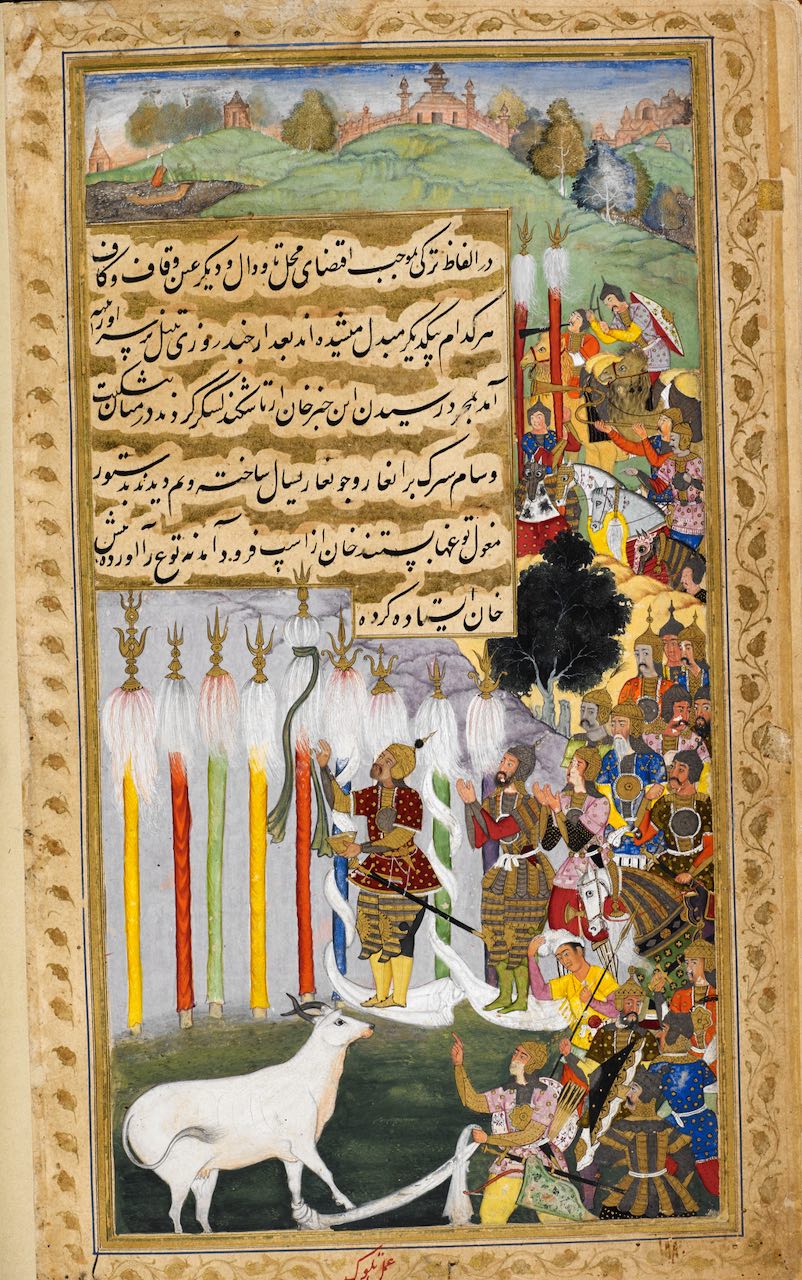 در الفاظ ترکی بموجب اقتضای محل تا و دال و دیگر غین و قاف و کاف
هر کدام بیکدیگر مبدل میشده اند بعد از چند روزی تنبل بر سر اوراتپه
آمد بمجرد رسیدن این خبر خان از تاشکند لشکر کردند در میان بشکنت
و سام سرک برانغار و جوانغار یسال ساخته ویم دیدند بدستور
مغول توغها بستند خان از اسپ فرود آمد نه توغ را آورده پیش
خان ایستاده کرده